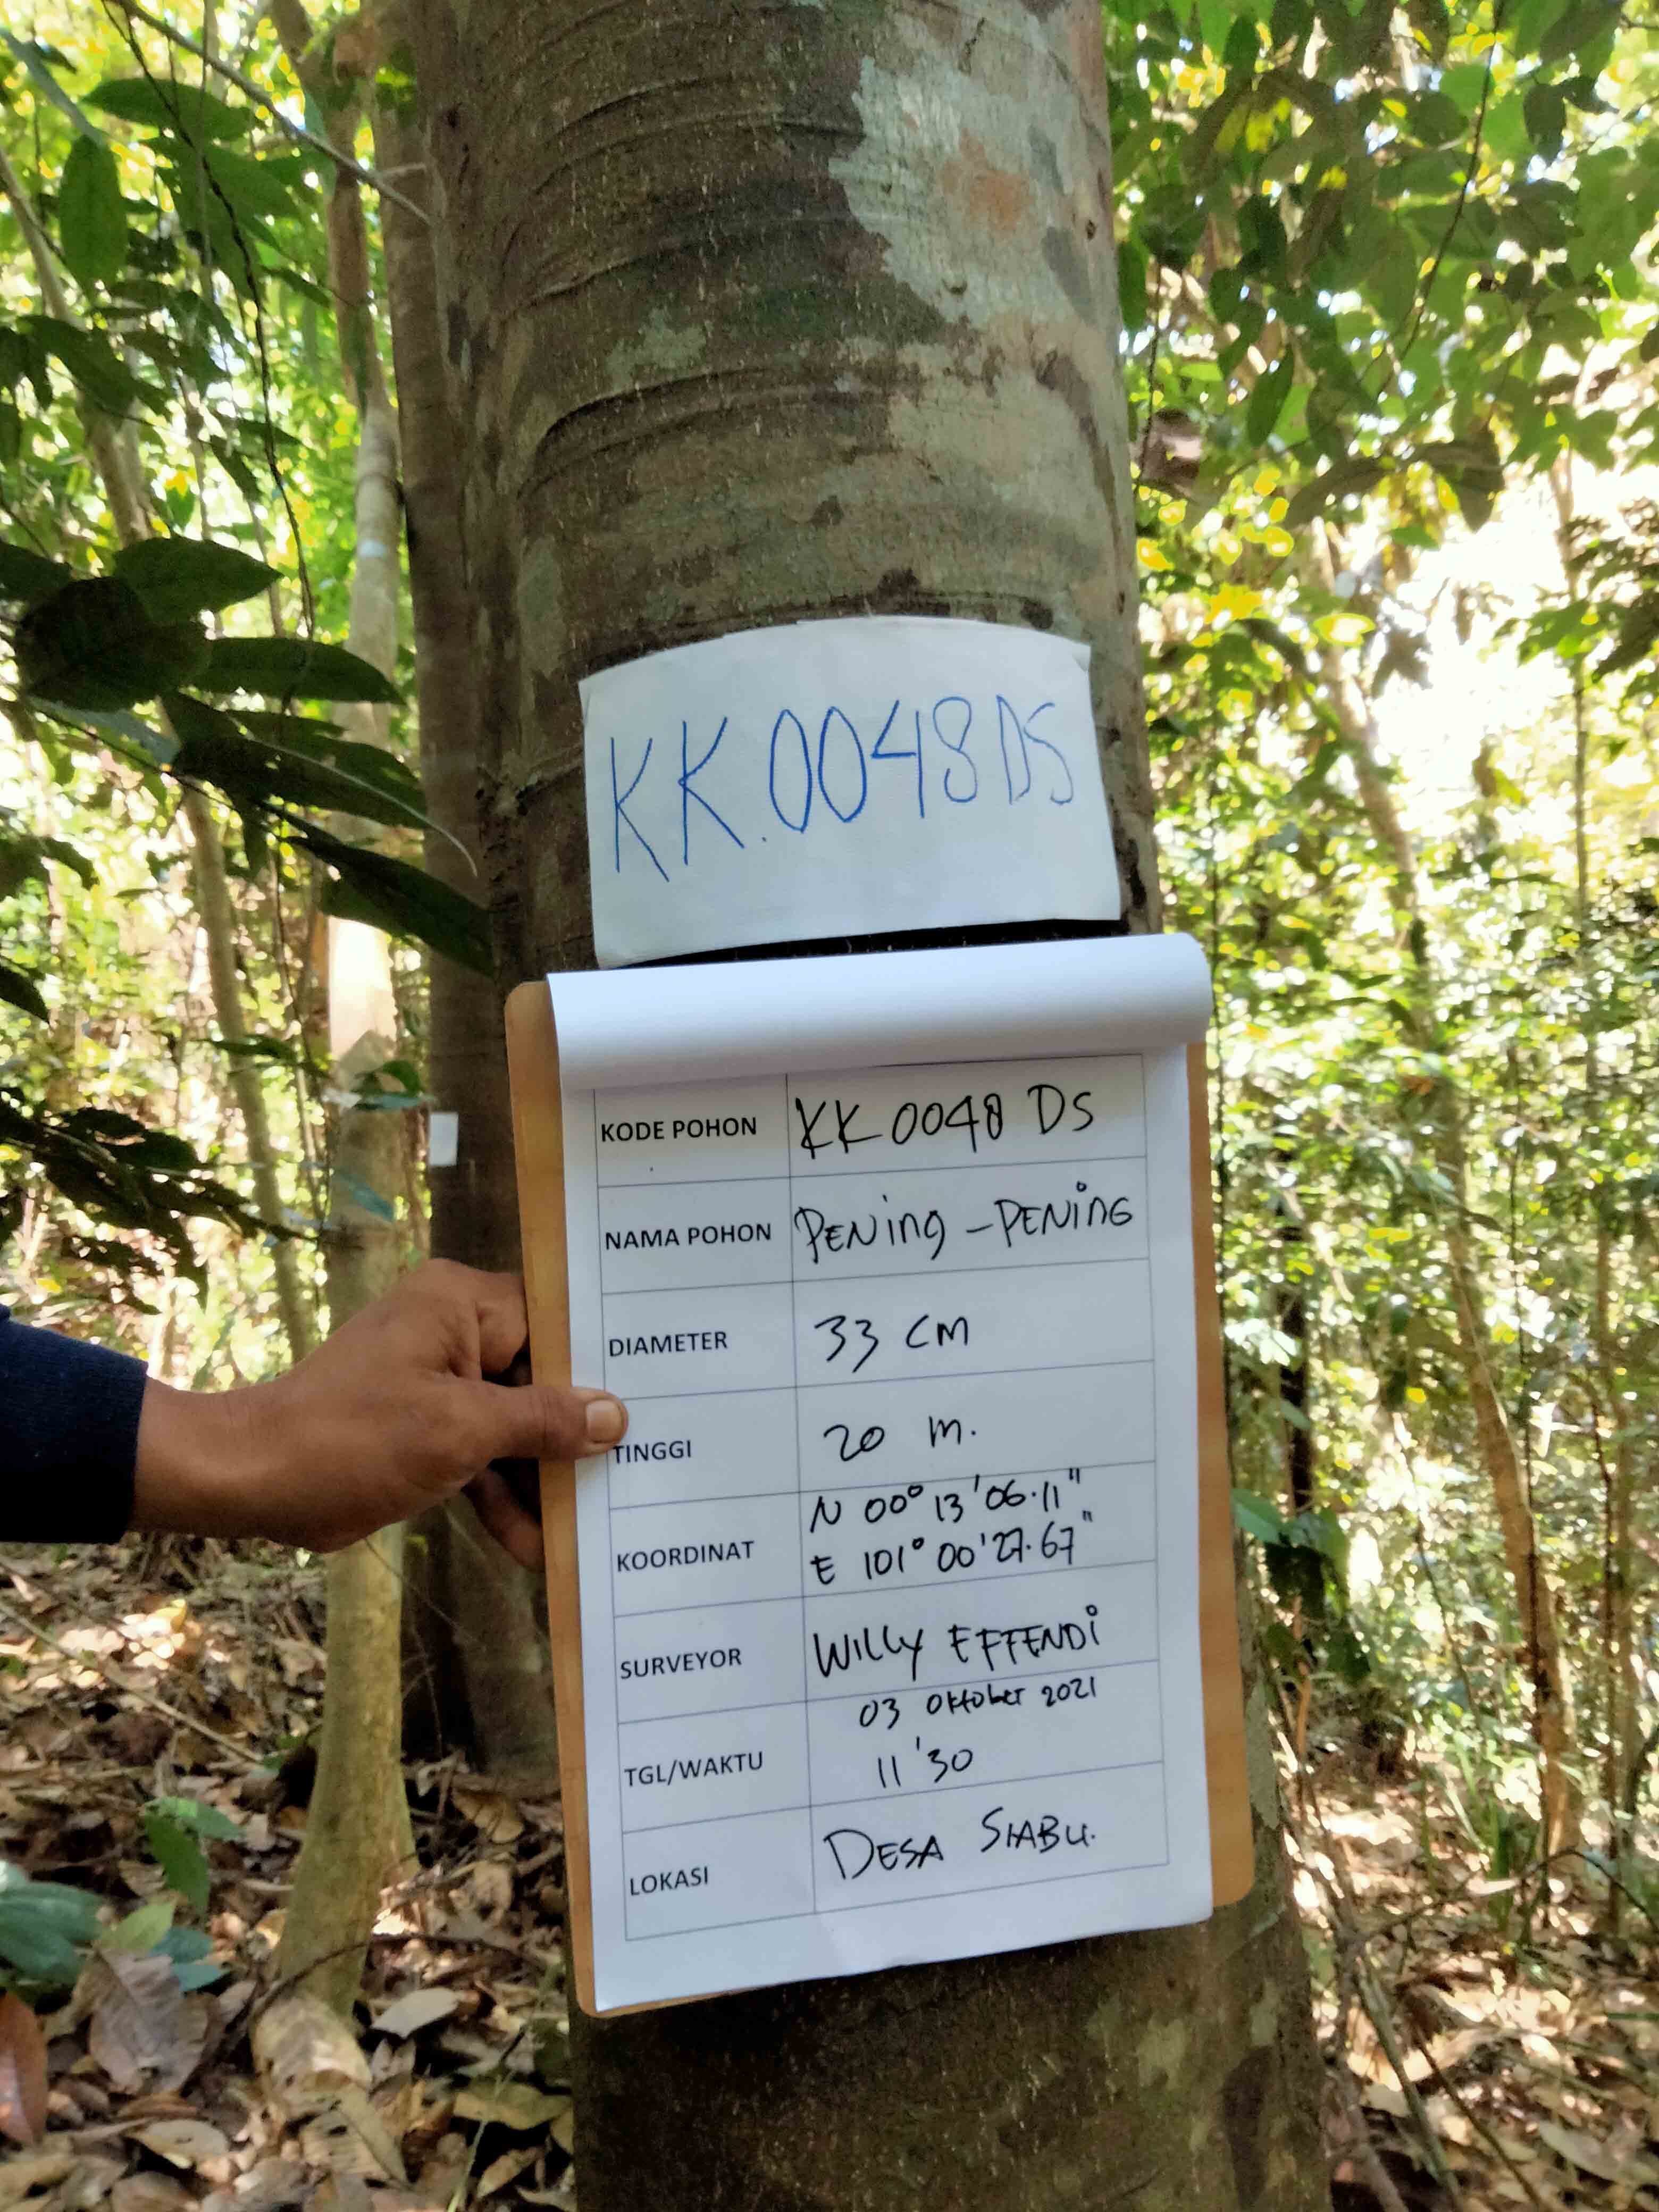 KK.0048 DS
KODE POHON KK 0048 DS
NAMA POHON PENing - PENiNG
DIAMETER 33 CM
TINGGI 20 m.
KOORDINAT N 00° 13 '06.11"
E 101° 00'27.67"
SURVEYOR WILLY EFFENDi
TGL/WAKTU 03 Oktober 2021
11'30
LOKASI DESA SIABU.